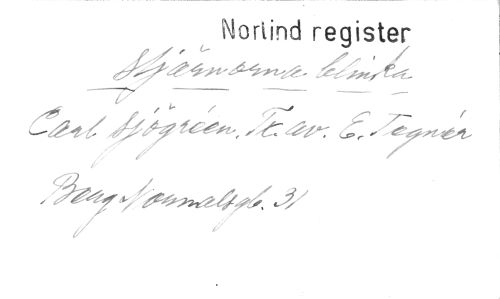 Norlind register
Stjärnorna blinka
Carl Sjögreen. Tx. av. E. Tegnér
Berg Normalsgb. 31